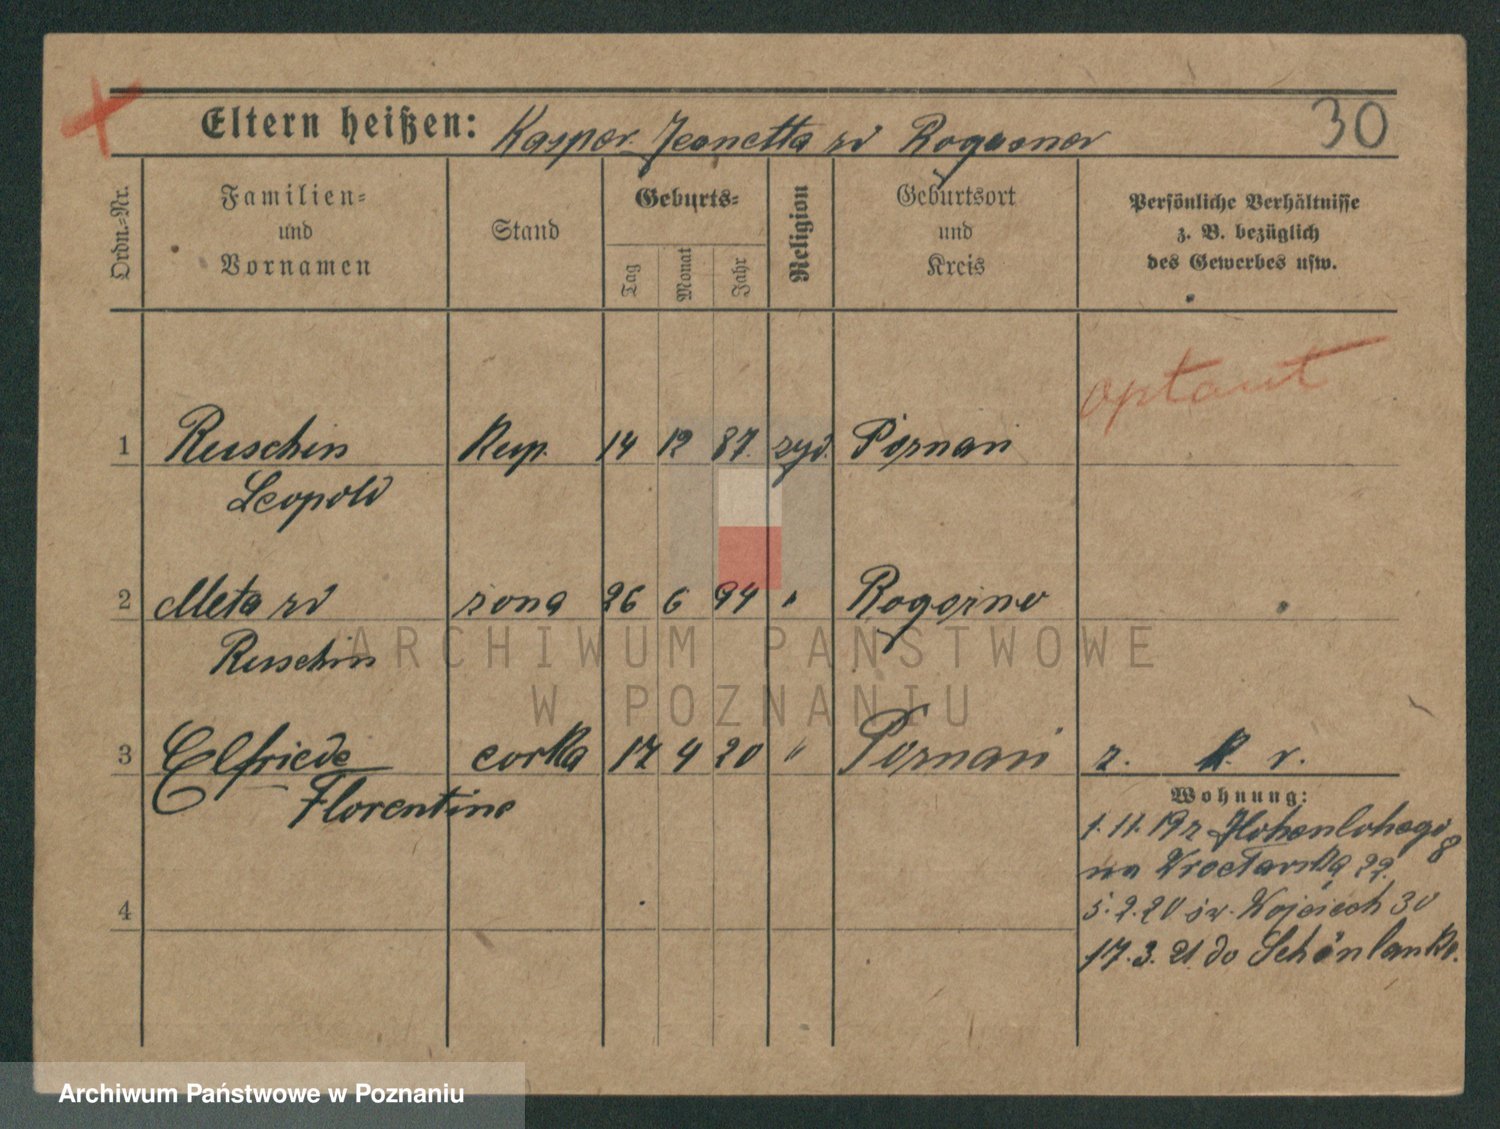 30
Eltern heißen: Kasper Jeanetta zd Rogasner
Ordn.-Nr.
Familien-
und
Vornamen
Stand
Geburts-
Tag
Monat
Jahr
Religion
Geburtsort
und
Kreis
Persönliche Verhältnisse
z. B. bezüglich
des Gewerbes usw.
optant
1 Ruschin Kup. 14 12 87. żyd. Poznań
Leopold
2 Meta zd żona 26 6 94 " Rogoźno
Ruschin
3 Elfriede corka 17 4 20 " Poznań z. K. r.
Florentine
Wohnung:
1.11.19 z Hohenlohego 8
na Wrocławską 22.
5.2.20 św. Wojciech 30
17.3.21 do Schönlanke.
4
ARCHIWUM PAŃSTWOWE
W POZNANIU
Archiwum Państwowe w Poznaniu